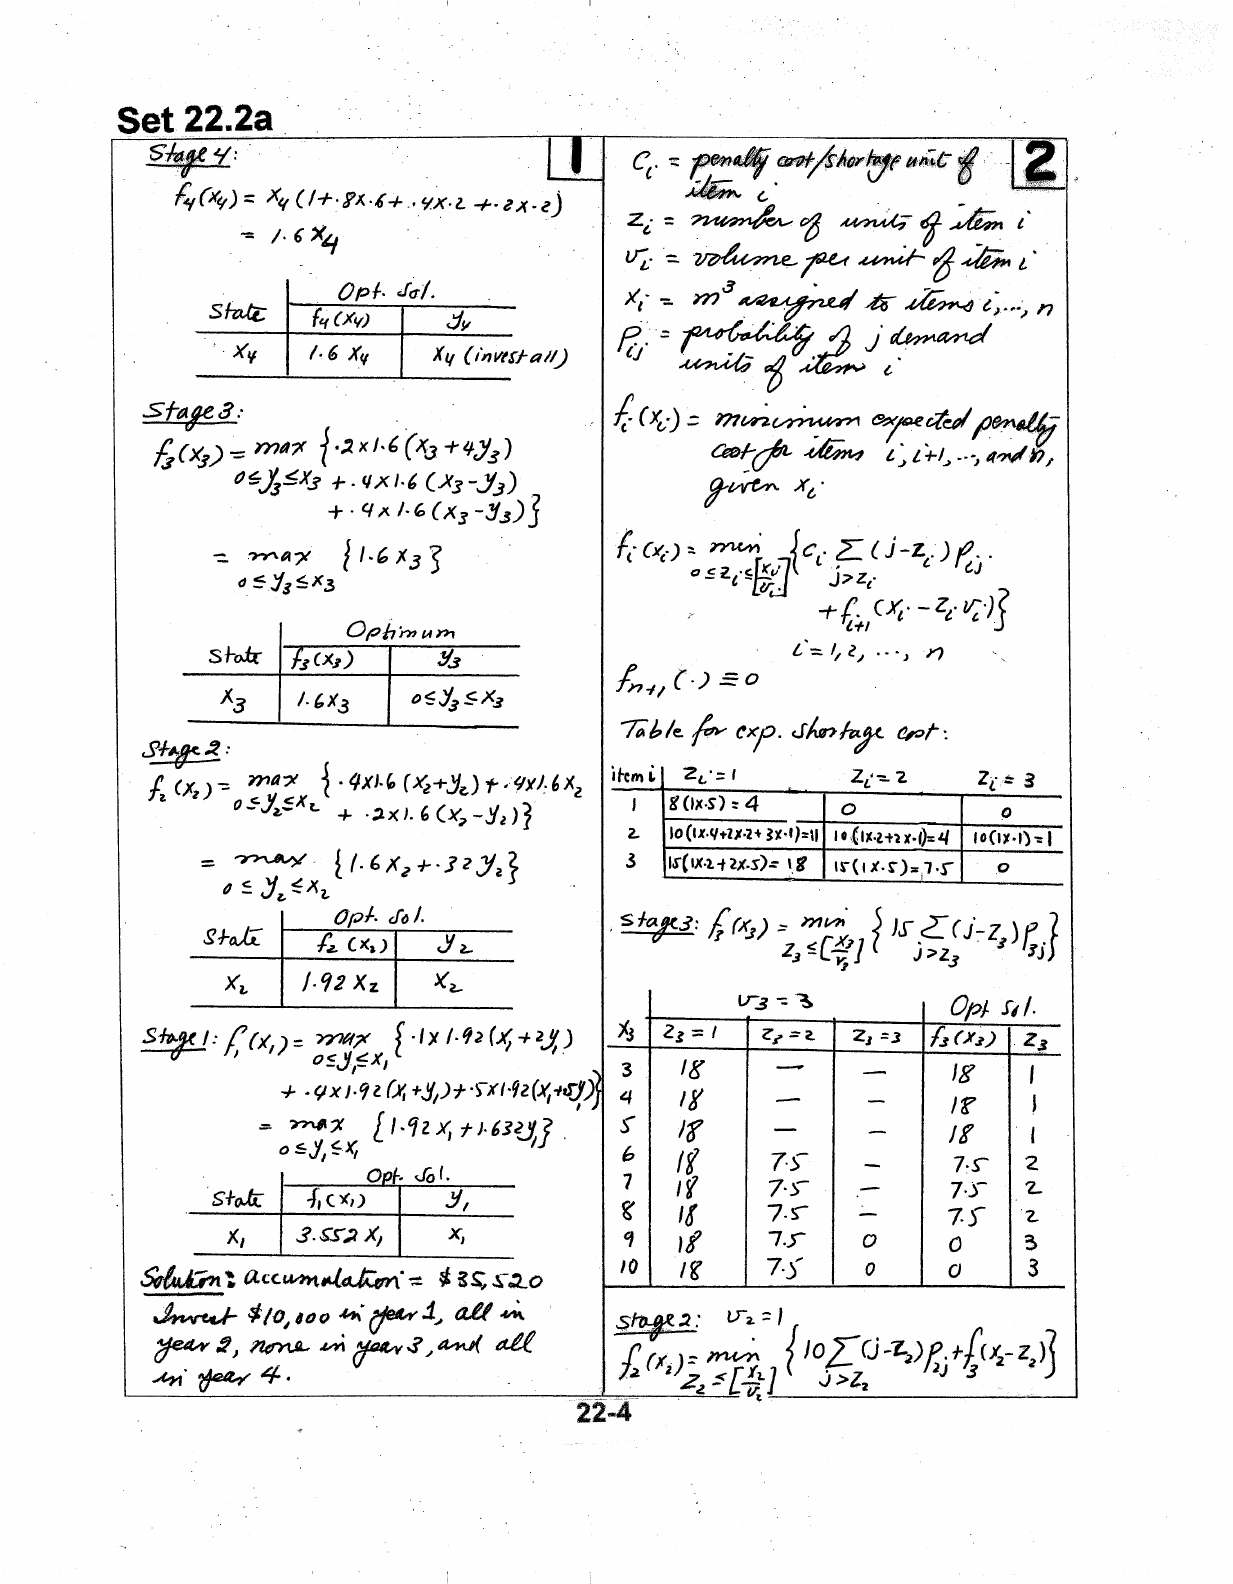 Set 22.2a
1
Stage 4:
f4(x4) = x4 (1+.8x.6+.4x.2+.2x.2)
= 1.6 x4
Opt. Sol.
State f4(x4) y4
x4 1.6 x4 x4 (invest all)
Stage 3:
f3(x3) = max {.2x1.6(x3+4y3)
0≤y3≤x3 +.4x1.6(x3-y3)
+.4x1.6(x3-y3)}
= max {1.6x3}
0≤y3≤x3
Optimum
State f3(x3) y3
x3 1.6x3 0≤y3≤x3
Stage 2:
f2(x2) = max {.4x1.6(x2+y2)+.4x1.6x2
0≤y2≤x2 + .2x1.6(x2-y2)}
= max {1.6x2+.32y2}
0≤y2≤x2
Opt. Sol.
State f2(x2) y2
x2 1.92x2 x2
Stage 1: f1(x1) = max {.1x1.92(x1+2y1)
0≤y1≤x1
+.4x1.92(x1+y1)+.5x1.92(x1+5y1)}
= max {1.92x1+1.632y1}
0≤y1≤x1
Opt. Sol.
State f1(x1) y1
x1 3.552x1 x1
Solution: accumulation = $35,520
Invest $10,000 in year 1, all in
year 2, none in year 3, and all
in year 4.
2
Ci = penalty cost/shortage unit of
item i
zi = number of units of item i
vi = volume per unit of item i
xi = m³ assigned to items i,..., n
pij = probability of j demand
units of item i
fi(xi) = minimum expected penalty
cost for items i, i+1, ..., and n,
given xi
fi(xi) = min {ci Σ (j-zi) pij
0≤zi≤[xi/vi] j>zi
+ fi+1 (xi - zi vi)}
i = 1, 2, ..., n
fn+1(.) ≡ 0
Table for exp. shortage cost:
item i zi=1 zi=2 zi=3
1 8(1x.5)=4 0 0
2 10(1x.4+2x.2+3x.1)=11 10(1x.2+2x.1)=4 10(1x.1)=1
3 15(1x.2+2x.5)=18 15(1x.5)=7.5 0
Stage 3: f3(x3) = min {15 Σ (j-z3) p3j}
z3≤[x3/v3] j>z3
v3 = 3 Opt Sol.
x3 z3=1 z3=2 z3=3 f3(x3) z3
3 18 — — 18 1
4 18 — — 18 1
5 18 — — 18 1
6 18 7.5 — 7.5 2
7 18 7.5 — 7.5 2
8 18 7.5 — 7.5 2
9 18 7.5 0 0 3
10 18 7.5 0 0 3
Stage 2: v2 = 1
f2(x2) = min {10 Σ (j-z2) p2j + f3(x2-z2)}
z2≤[x2/v2] j>z2
22-4